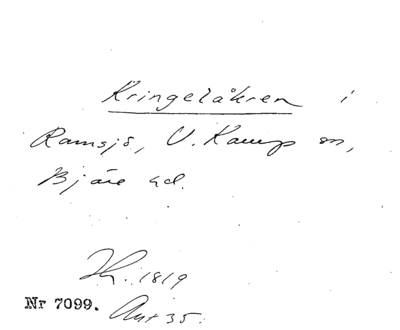 Kringelåkren i
Ramsjö, V. Karup sn,
Bjäre hd.
1819
Nr 7099. Ant 35.